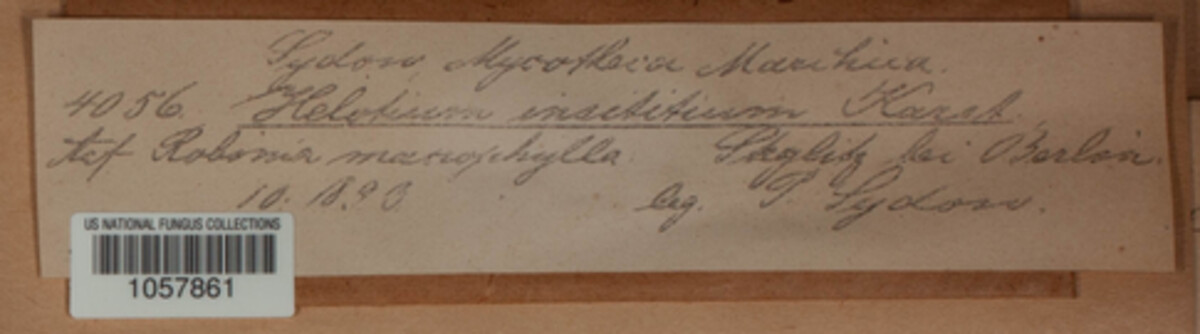 Sydow, Mycotheca Marchica.
4056. Helotium insititium Karst.
Auf Robinia macrophylla. Steglitz bei Berlin.
10. 1893. leg. P. Sydow.
US NATIONAL FUNGUS COLLECTIONS
1057861